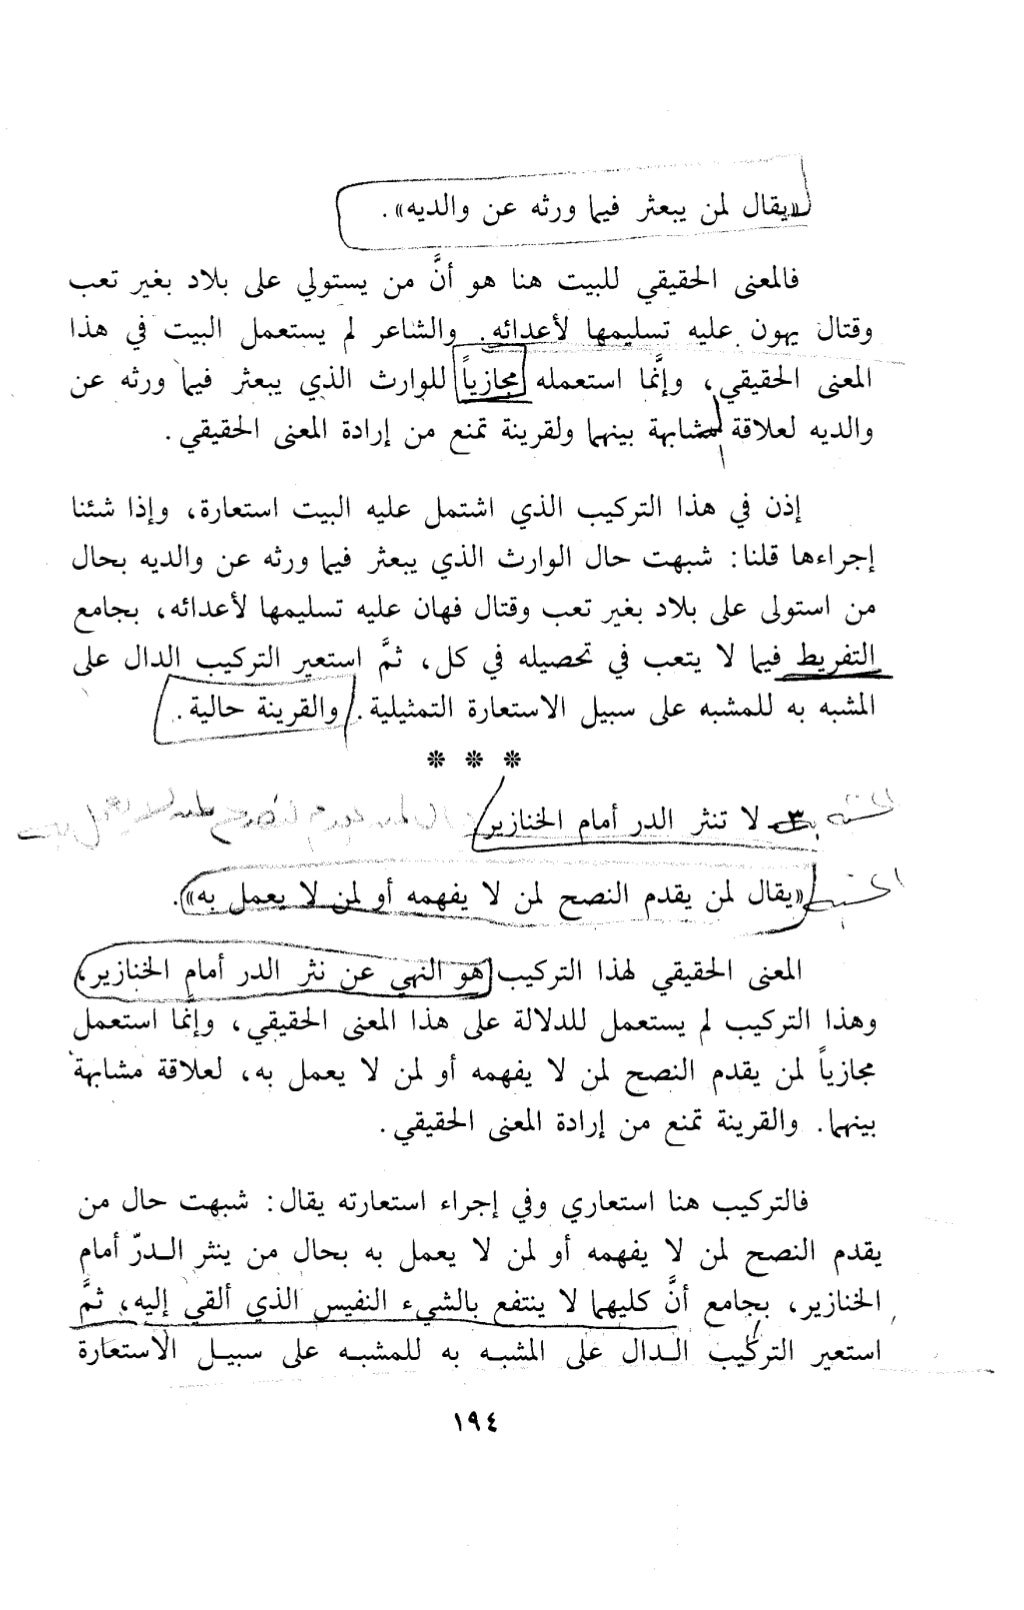 «يقال لمن يبعثر فيما ورثه عن والديه».
فالمعنى الحقيقي للبيت هنا هو أنَّ من يستولي على بلاد بغير تعب
وقتال يهون عليه تسليمها لأعدائه. والشاعر لم يستعمل البيت في هذا
المعنى الحقيقي، وإنَّما استعمله مجازياً للوارث الذي يبعثر فيما ورثه عن
والديه لعلاقة المشابهة بينهما ولقرينة تمنع من إرادة المعنى الحقيقي.
إذن في هذا التركيب الذي اشتمل عليه البيت استعارة، وإذا شئنا
إجراءها قلنا: شبهت حال الوارث الذي يبعثر فيما ورثه عن والديه بحال
من استولى على بلاد بغير تعب وقتال فهان عليه تسليمها لأعدائه، بجامع
التفريط فيما لا يتعب في تحصيله في كل، ثمَّ استعير التركيب الدال على
المشبه به للمشبه على سبيل الاستعارة التمثيلية. والقرينة حالية.
* * *
٣ - لا تنثر الدر أمام الخنازير
«يقال لمن يقدم النصح لمن لا يفهمه أو لمن لا يعمل به».
المعنى الحقيقي لهذا التركيب هو النهي عن نثر الدر أمام الخنازير،
وهذا التركيب لم يستعمل للدلالة على هذا المعنى الحقيقي، وإنَّما استعمل
مجازياً لمن يقدم النصح لمن لا يفهمه أو لمن لا يعمل به، لعلاقة مشابهة
بينهما. والقرينة تمنع من إرادة المعنى الحقيقي.
فالتركيب هنا استعاري وفي إجراء استعارته يقال: شبهت حال من
يقدم النصح لمن لا يفهمه أو لمن لا يعمل به بحال من ينثر الـدرّ أمام
الخنازير، بجامع أنَّ كليهما لا ينتفع بالشيء النفيس الذي ألقي إليه، ثمَّ
استعير التركيب الـدال على المشبـه به للمشبـه على سبيـل الاستعارة
١٩٤